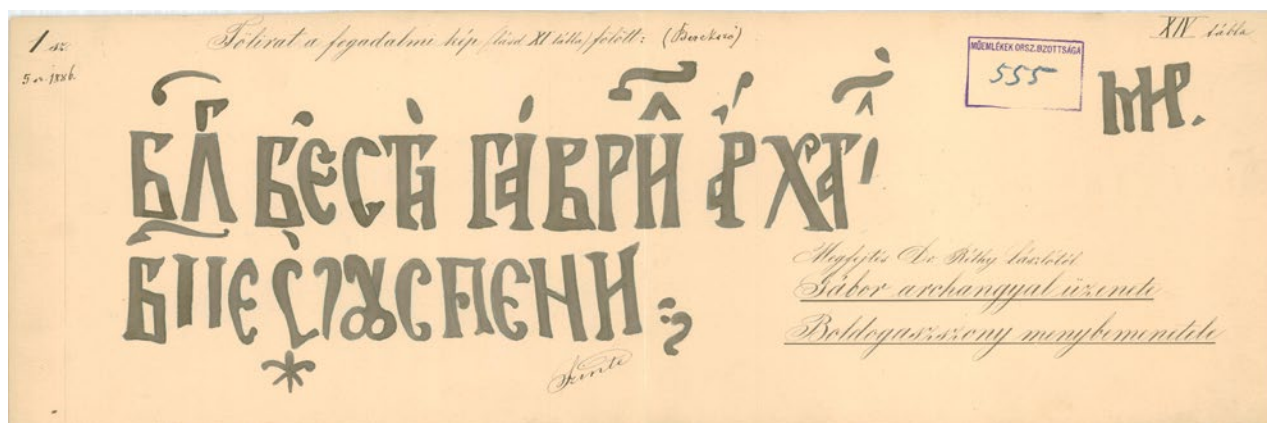 1 sz.
5 sz. 1886.
Fölirat a fogadalmi kép (lásd XI tábla) fölött: (Berekszó)
XIV tábla
MŰEMLÉKEK ORSZ. BIZOTTSÁGA
555
БЛ БЕСТИ ГАВРИ АРХАГ
МНР.
БПЕ СӀ ꙊСПЕНИ
Megfejtés Dr. Réthy Lászlótól
Gábor archangyal üzenete
Boldogaszszony menybemenetele
Szinte